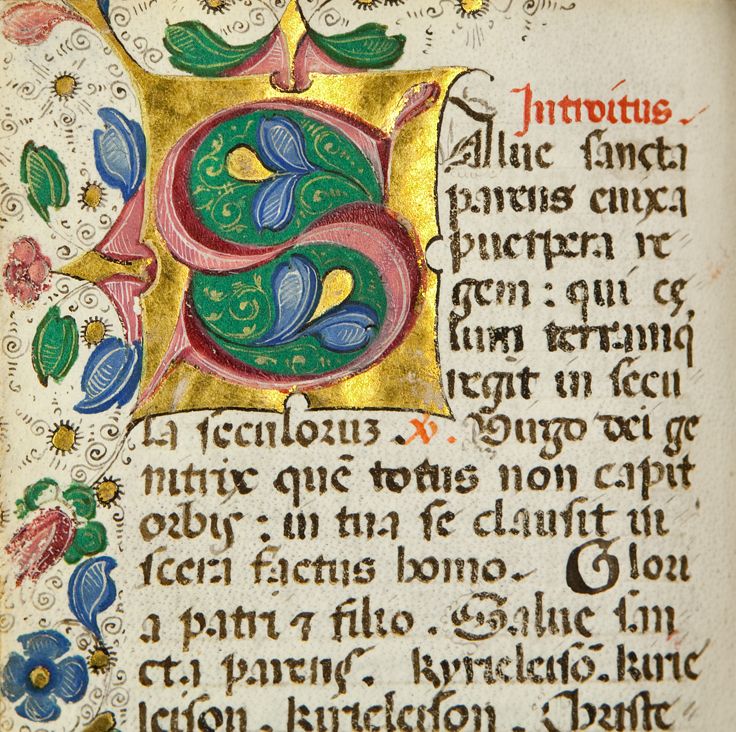 Introitus.
SAlue sancta
parens enixa
puerpera re
gem : qui cę
lum terramq
regit in secu
la seculoruz . v. Uirgo dei ge
nitrix quē totus non capit
orbis : in tua se clausit ui
scera factus homo. Glori
a patri ⁊ filio . Salue san
cta parens. kyrieleisō. kirie
leison. kirieleison. Christe